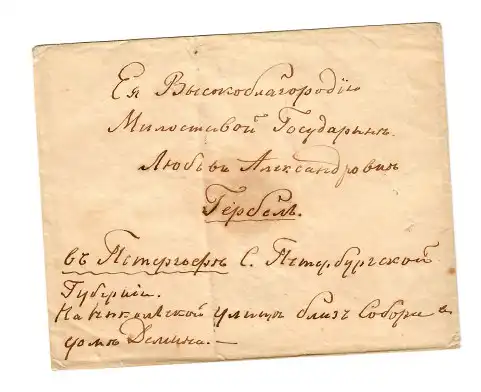 Ея Высокоблагородію
Милостивой Государынѣ
Любовь Александровнѣ
Гербель.
въ Петергофѣ С. Петербургской
Губерніи.
На улицѣ близь Собора
домъ Демина. —